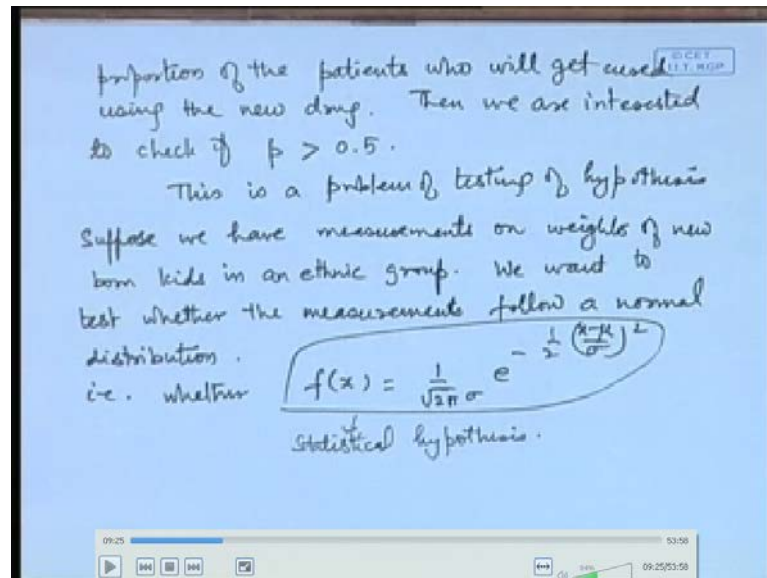 proportion of the patients who will get cured
© CET
I.I.T. KGP
using the new drug. Then we are interested
to check if p > 0.5.
This is a problem of testing of hypothesis
Suppose we have measurements on weights of new
born kids in an ethnic group. We want to
test whether the measurements follow a normal
distribution.
i.e. whether f(x) = 1/√2π σ e^{-1/2 (x-μ/σ)^2}
Statistical hypothesis.
09:25 53:58
54% 09:25/53:58